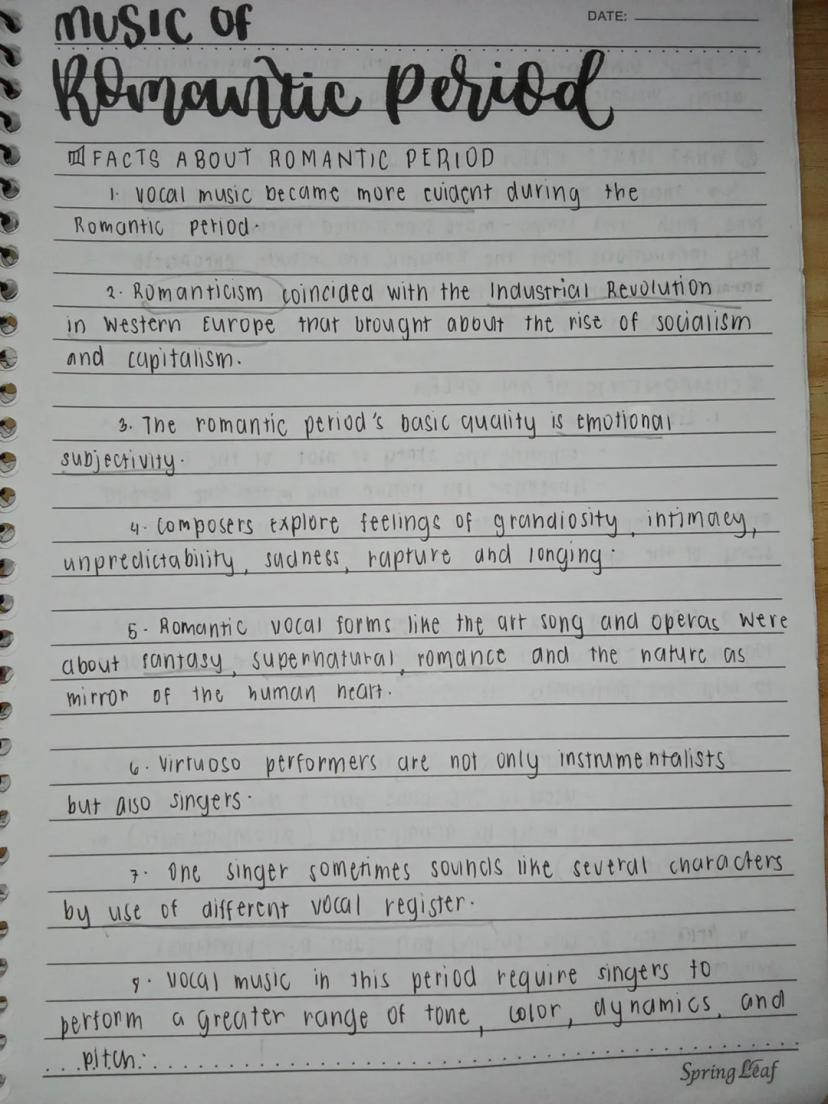 MUSIC OF
DATE:
Romantic Period
FACTS ABOUT ROMANTIC PERIOD
1. vocal music became more evident during the
Romantic period.
2. Romanticism coincided with the Industrial Revolution
in Western Europe that brought about the rise of socialism
and capitalism.
3. The romantic period's basic quality is emotional
subjectivity.
4. composers explore feelings of grandiosity, intimacy,
unpredictability, sadness, rapture and longing.
5. Romantic vocal forms like the art song and operas were
about fantasy, supernatural, romance and the nature as
mirror of the human heart.
6. Virtuoso performers are not only instrumentalists
but also singers.
7. One singer sometimes sounds like several characters
by use of different vocal register.
8. Vocal music in this period require singers to
perform a greater range of tone, color, dynamics, and
pitch.
Spring Leaf